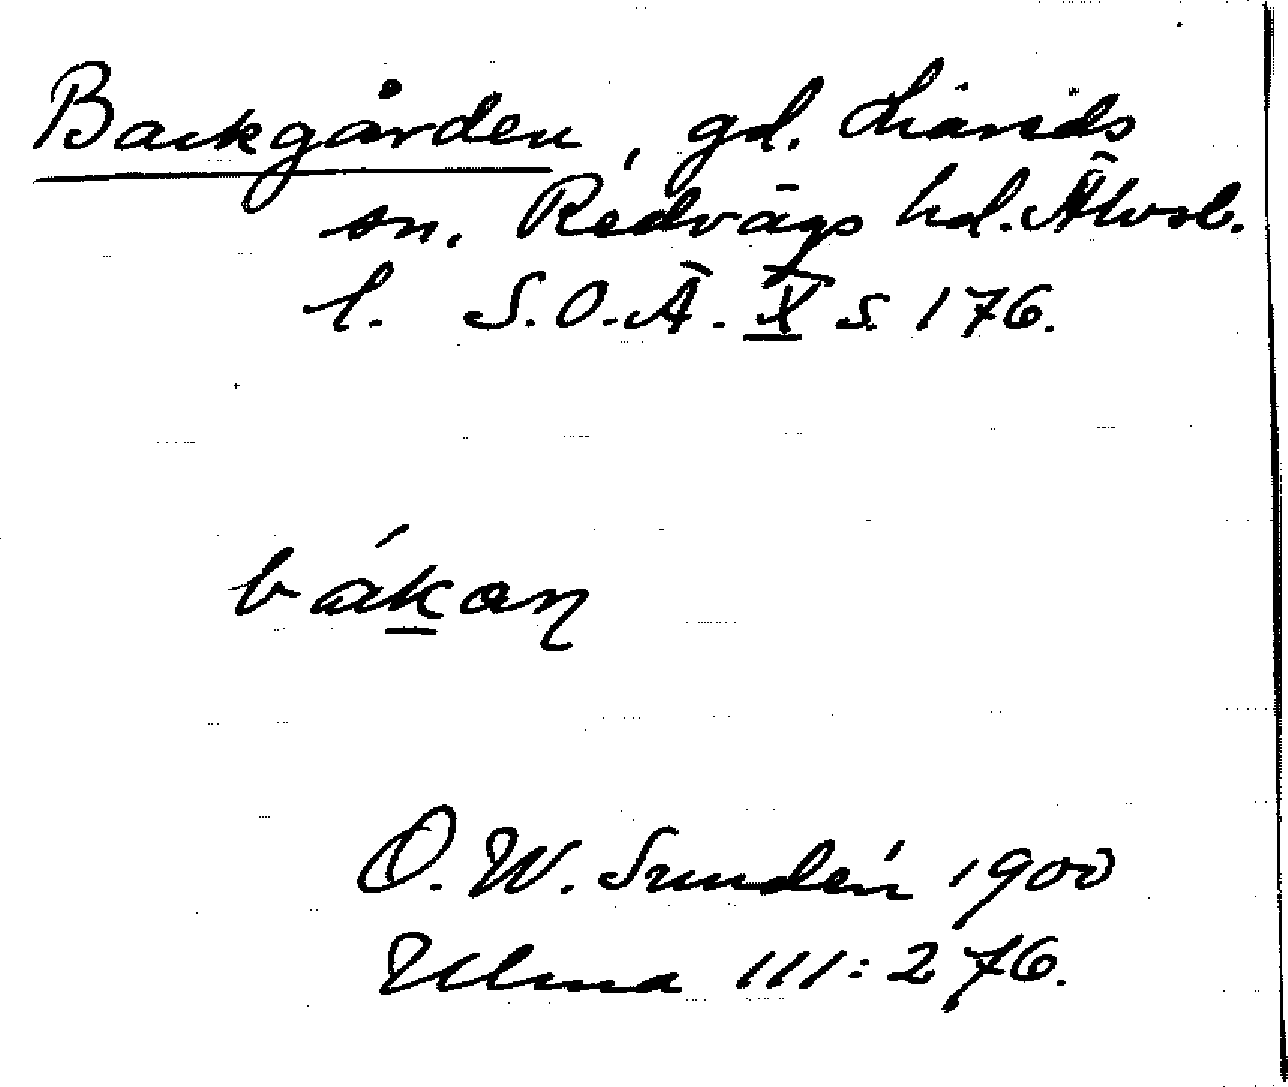 Backgården, gd. Liareds
sn. Redvägs hd. Älvsb.
l. S.O.Ä. X s. 176.
bákaɳ
O. W. Sundén 1900
Ulma 111:276.